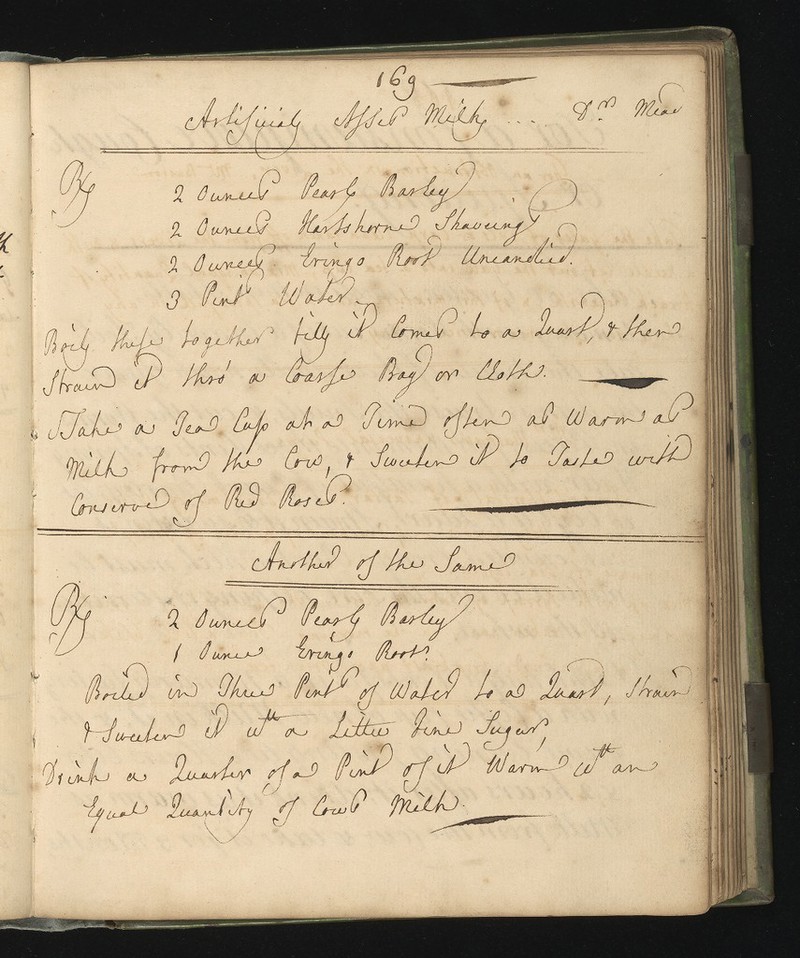 169
Artificial Asses Milk ... Dr. Mead
Rx
2 Ounces Pearl Barley
2 Ounces Hartshorne Shaveings
2 Ounces Eringo Root Uncandied.
3 Pints Water.
Boil these together till it Comes to a Quart, & then
Strain it thro' a Coarse Bag or Cloth.
Take a Tea Cup at a Time often as Warm as
Milk from the Cow, & Sweeten it to Taste with
Conserve of Red Roses.
Another of the Same
Rx
2 Ounces Pearl Barley
1 Ounce Eringo Root.
Boiled in Three Pints of Water to a Quart, Strain
& Sweeten it wth a Little fine Sugar,
Drink a Quarter of a Pint of it Warm wth an
Equal Quantity of Cows Milk.